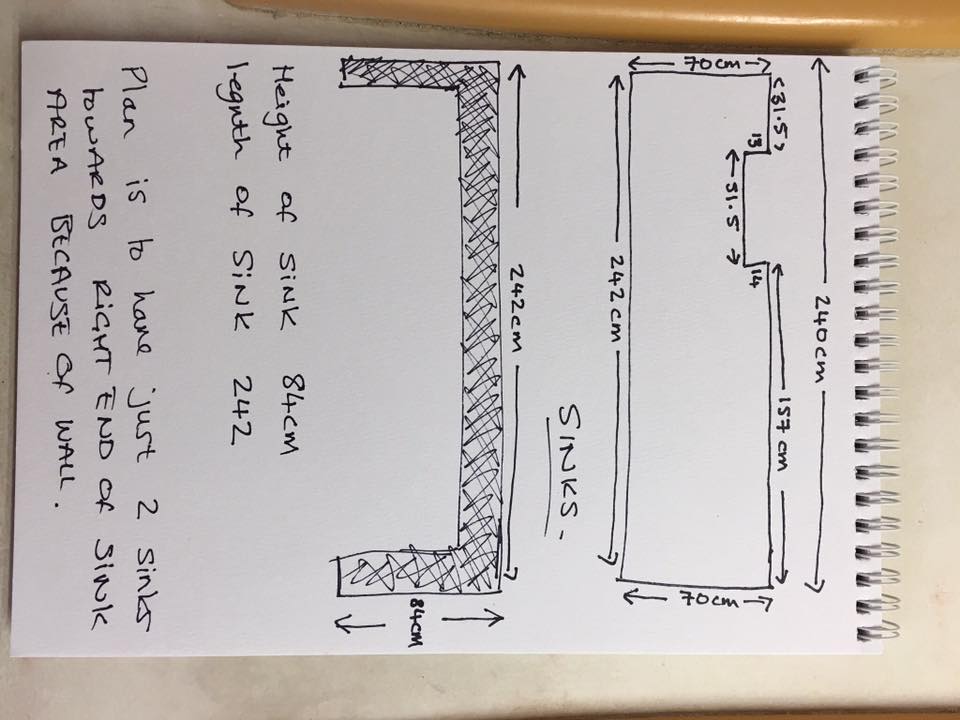 240cm
31.5
157cm
13
14
31.5
70cm
70cm
242cm
SINKS.
242cm
84cm
Height of sink 84cm
legnth of SiNK 242
Plan is to have just 2 sinks
towARDS RiGHT END OF SiNK
AREA BECAUSE OF WALL.